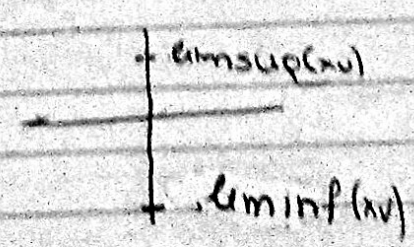 limsup(xν)
liminf(xν)